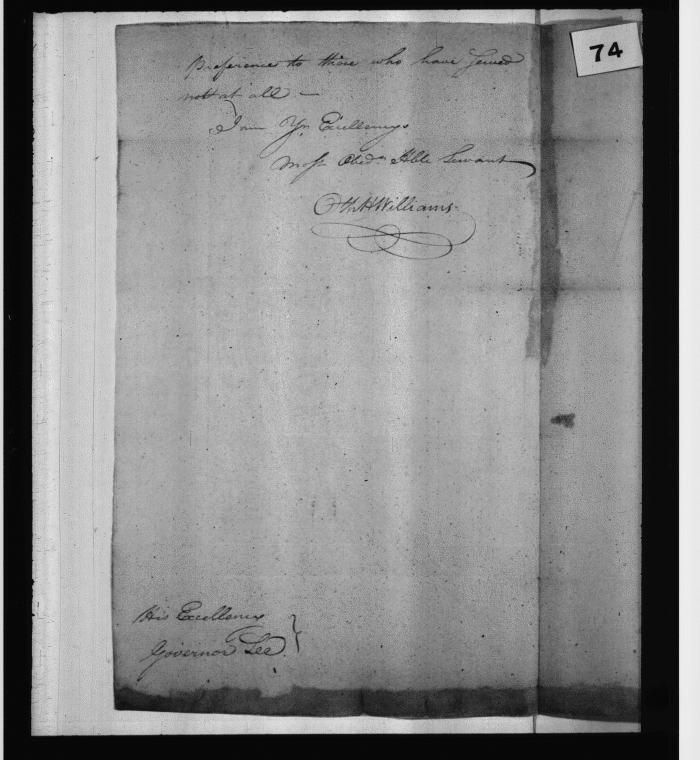 74
Preference to those who have served
not at all —
I am Yr. Excellencys
Most Obedt. Hble Servant
Oth. H. Williams.
His Excellency
Governor Lee }